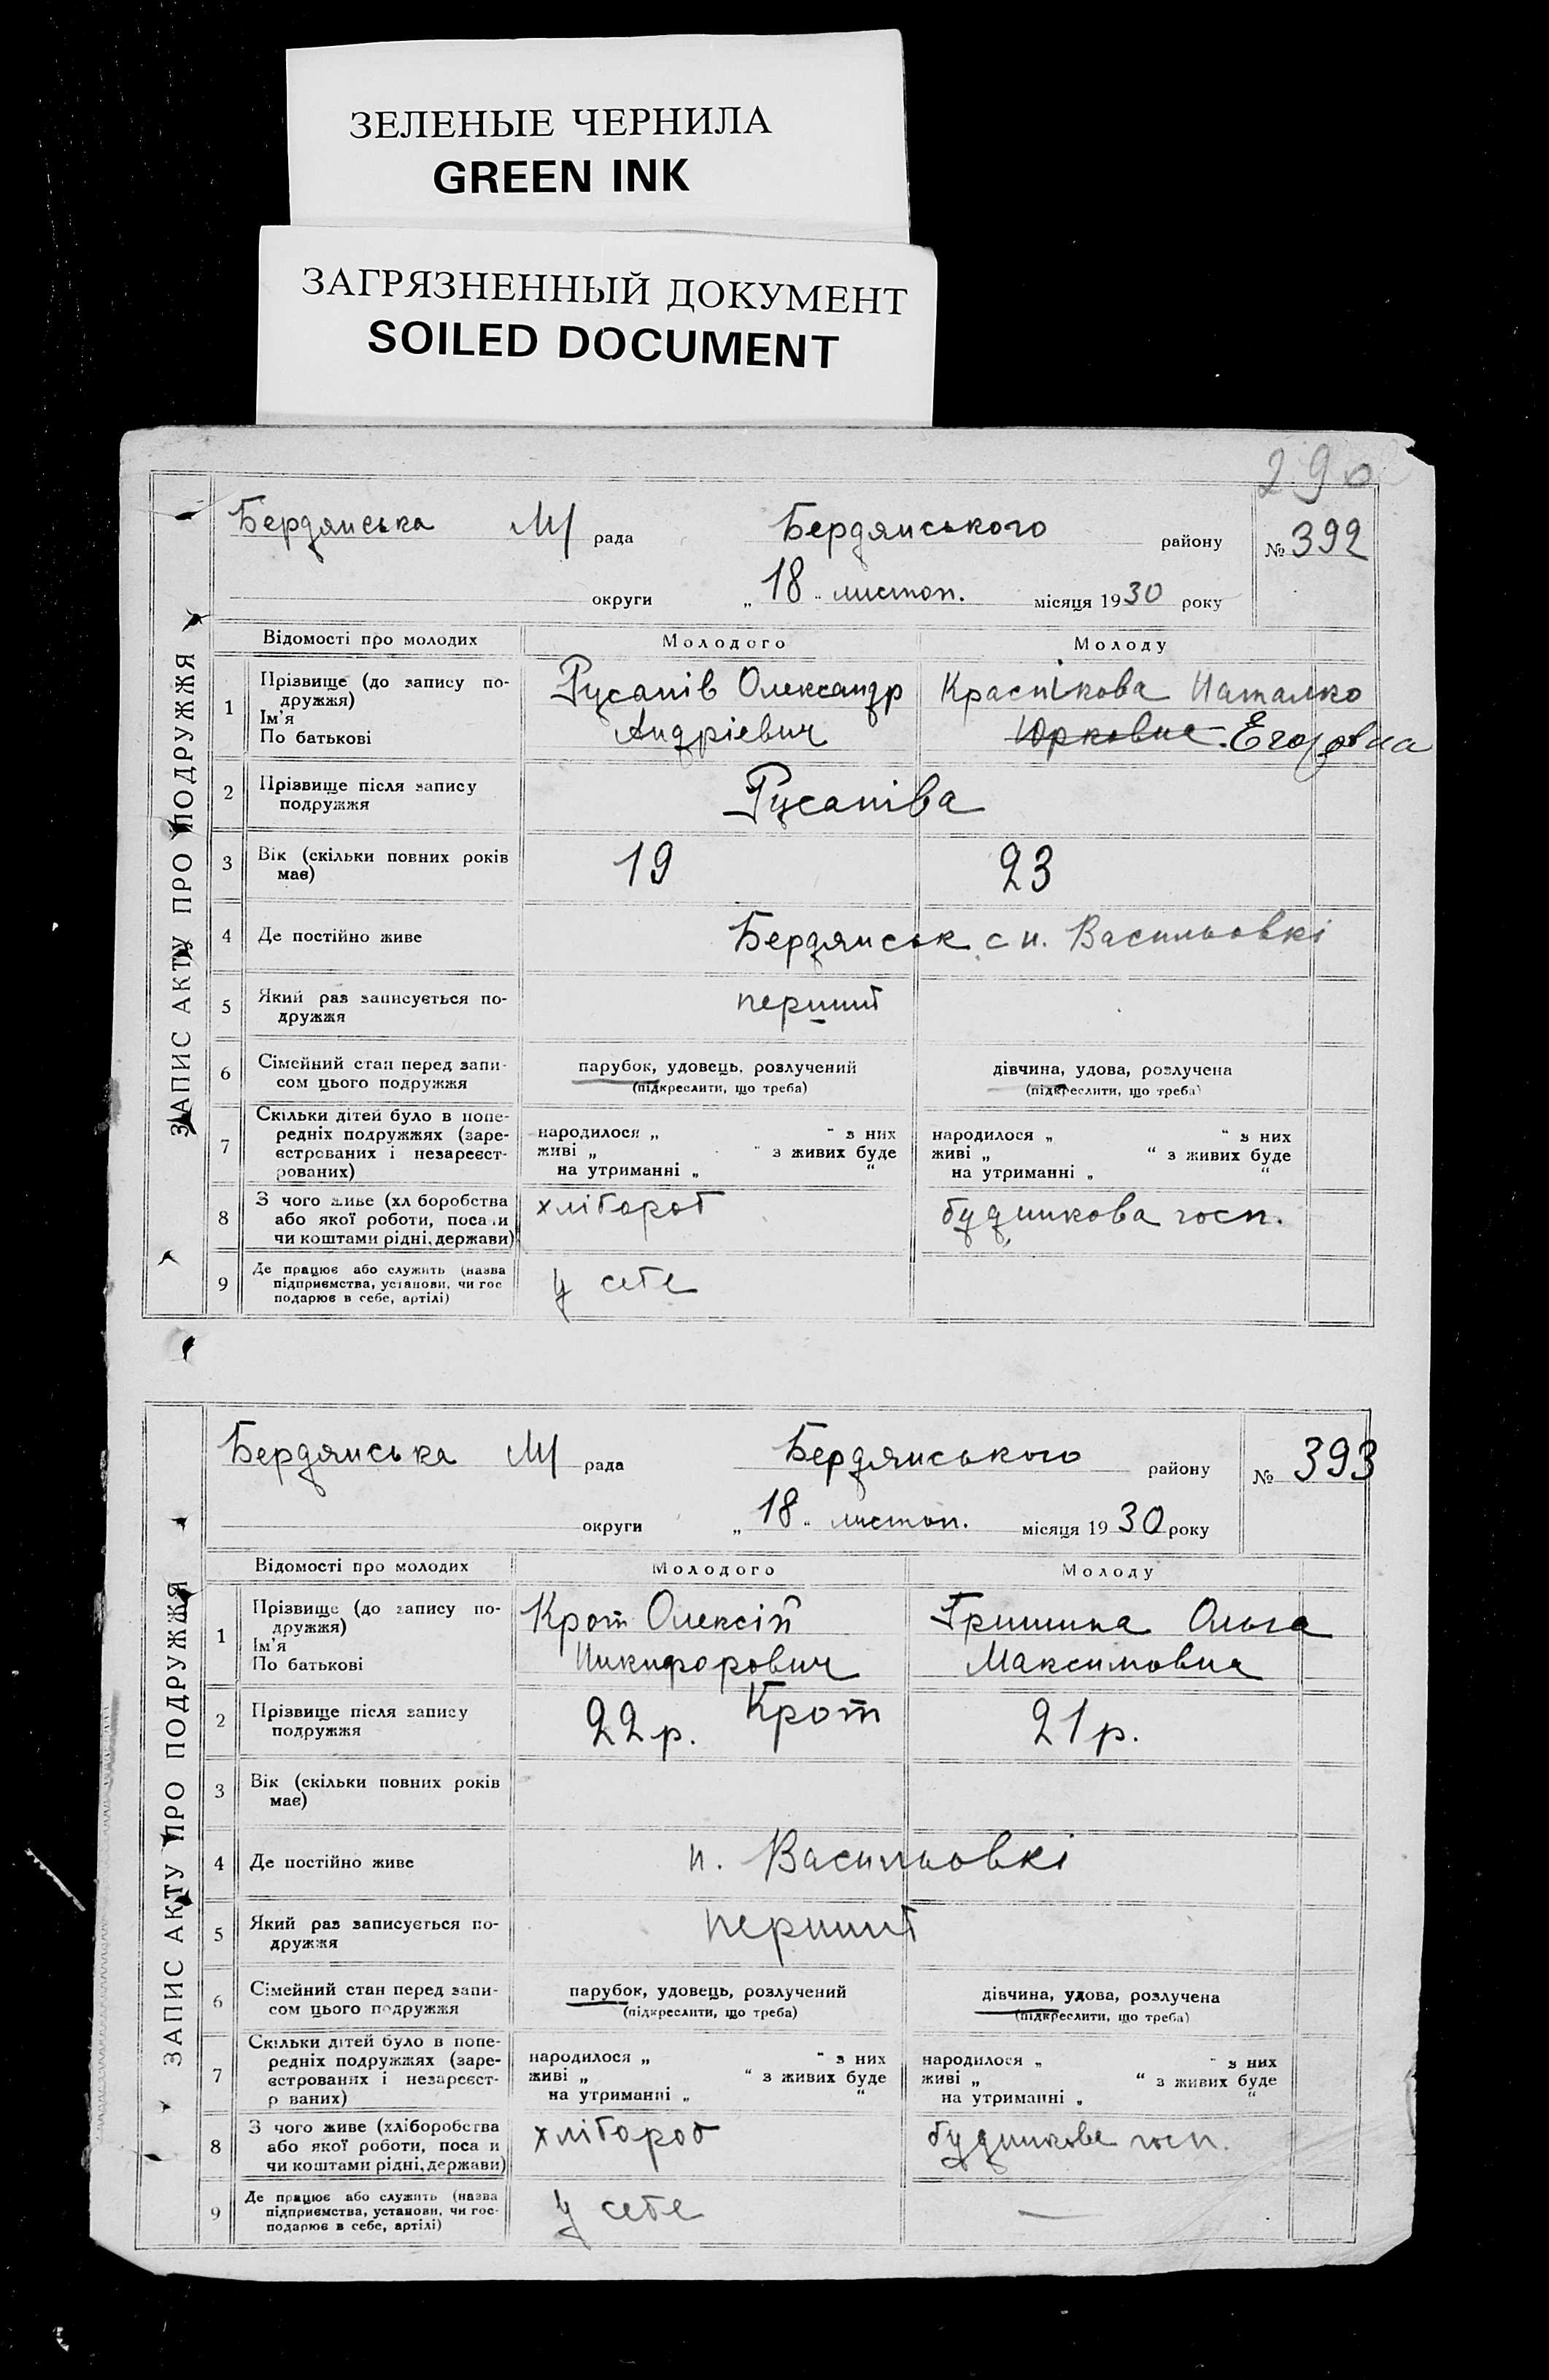 ЗЕЛЕНЫЕ ЧЕРНИЛА
GREEN INK
ЗАГРЯЗНЕННЫЙ ДОКУМЕНТ
SOILED DOCUMENT
290
ЗАПИС АКТУ ПРО ПОДРУЖЖЯ
Бердянська М/ рада Бердянського району № 392
округи „ 18 " листоп. місяця 1930 року
Відомості про молодих Молодого Молоду
1 Прізвище (до запису подружжя) Ім'я По батькові
Русанів Олександр Андрієвич
Краснікова Наталко Юрковна Егоровна
2 Прізвище після запису подружжя Русаніва
3 Вік (скільки повних років має) 19 23
4 Де постійно живе Бердянськ с н. Васильовкі
5 Який раз записується подружжя перший
6 Сімейний стан перед записом цього подружжя
парубок, удовець, розлучений (підкреслити, що треба)
дівчина, удова, розлучена (підкреслити, що треба)
7 Скільки дітей було в попередніх подружжях (зареєстрованих і незареєстрованих)
народилося „ " з них
живі „ " з живих буде
на утриманні „ "
народилося „ " з них
живі „ " з живих буде
на утриманні „ "
8 З чого живе (хл боробства або якої роботи, поса и чи коштами рідні, держави)
хлібороб
будинкова госп.
9 Де працює або служить (назва підприємства, установи, чи гос подарює в себе, артілі)
у себе
ЗАПИС АКТУ ПРО ПОДРУЖЖЯ
Бердянська М/ рада Бердянського району № 393
округи „ 18 " листоп. місяця 1930 року
Відомості про молодих Молодого Молоду
1 Прізвище (до запису подружжя) Ім'я По батькові
Крот Олексій Никифорович
Гришина Ольга Максимовна
2 Прізвище після запису подружжя 22 р. Крот 21 р.
3 Вік (скільки повних років має)
4 Де постійно живе н. Васильовкі
5 Який раз записується подружжя перший
6 Сімейний стан перед записом цього подружжя
парубок, удовець, розлучений (підкреслити, що треба)
дівчина, удова, розлучена (підкреслити, що треба)
7 Скільки дітей було в попередніх подружжях (зареєстрованих і незареєстр ваних)
народилося „ " з них
живі „ " з живих буде
на утриманні „ "
народилося „ " з них
живі „ " з живих буде
на утриманні „ "
8 З чого живе (хліборобства або якої роботи, поса и чи коштами рідні, держави)
хлібороб
будинкова госп.
9 Де працює або служить (назва підприємства, установи, чи господарює в себе, артілі)
у себе —